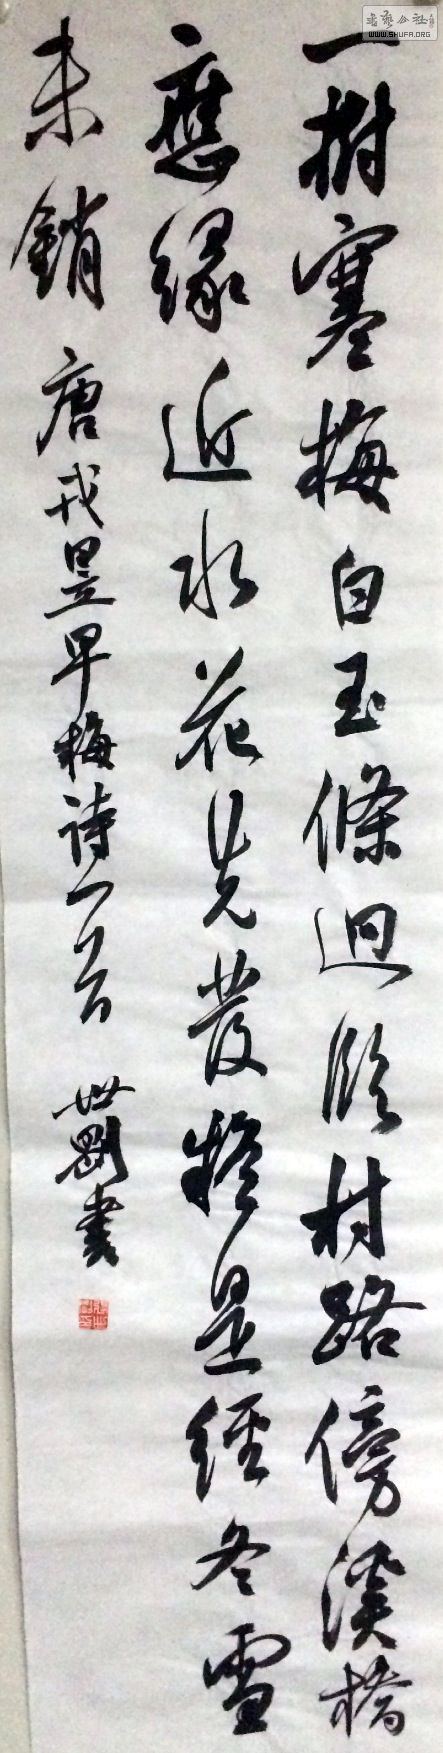 一樹寒梅白玉條迥臨村路傍溪橋
應緣近水花先發疑是經冬雪
未銷 唐戎昱早梅詩一首 世剛書
書藝公社
WWW.SHUFA.ORG